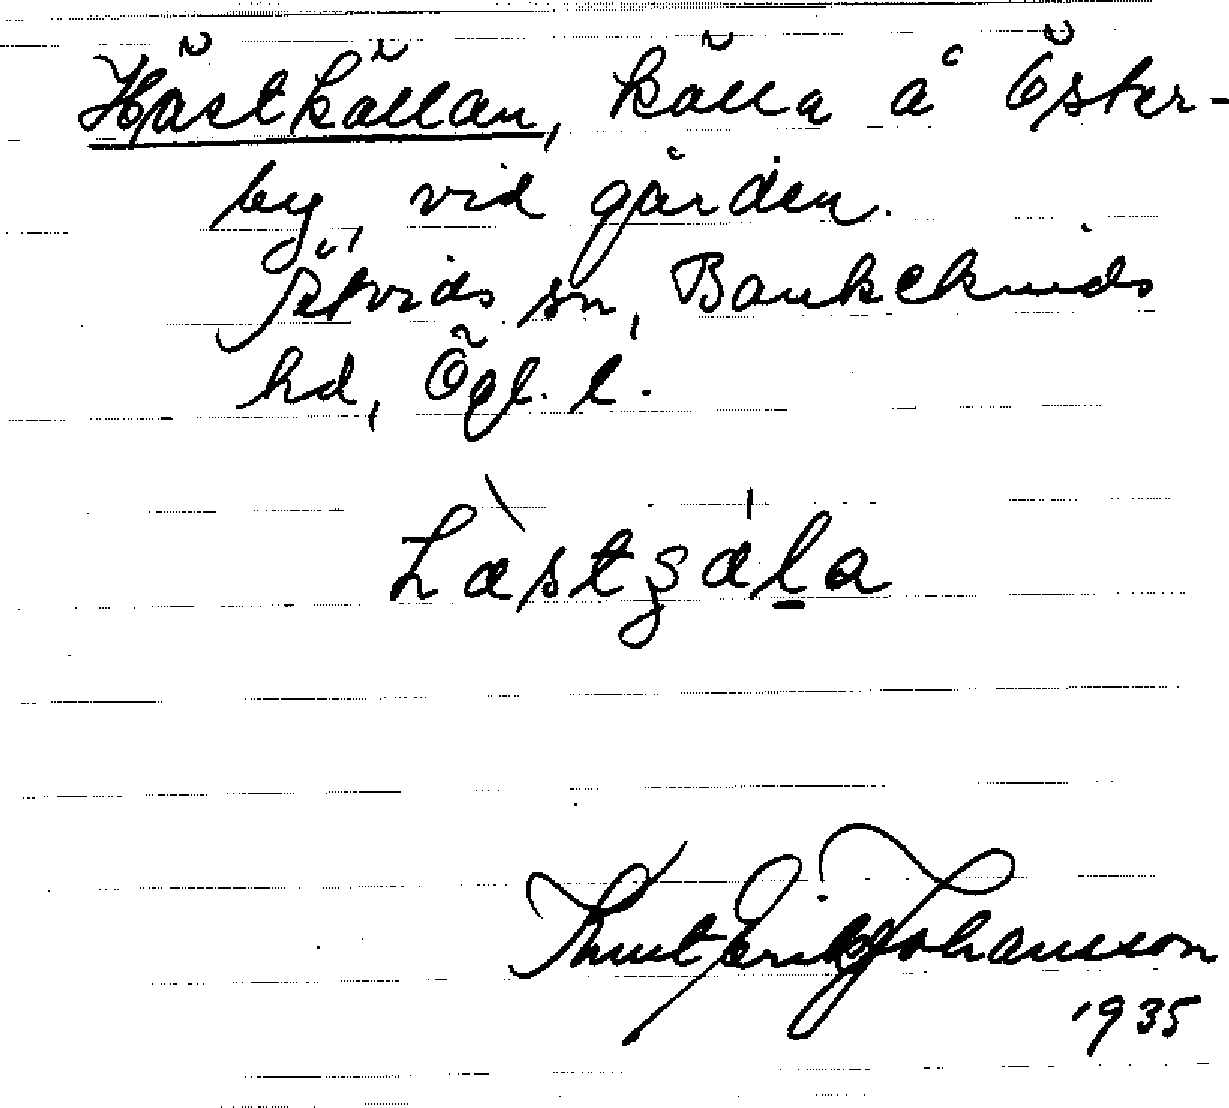 Hästkällan, källa å Öster-
by, vid gården.
Åtvids sn, Bankekinds
hd, Ögl. l.
Knut Erik Johansson
1935